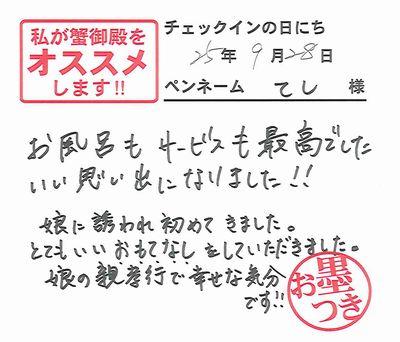 私が蟹御殿を
オススメ
します!!
チェックインの日にち
25年 9月28日
ペンネーム てし 様
お風呂も サービスも最高でした
いい思い出になりました!!
娘に誘われ初めて きました。
とてもいい おもてなし をしていただきました。
娘の親孝行で幸せな気分
です!!
お墨つき